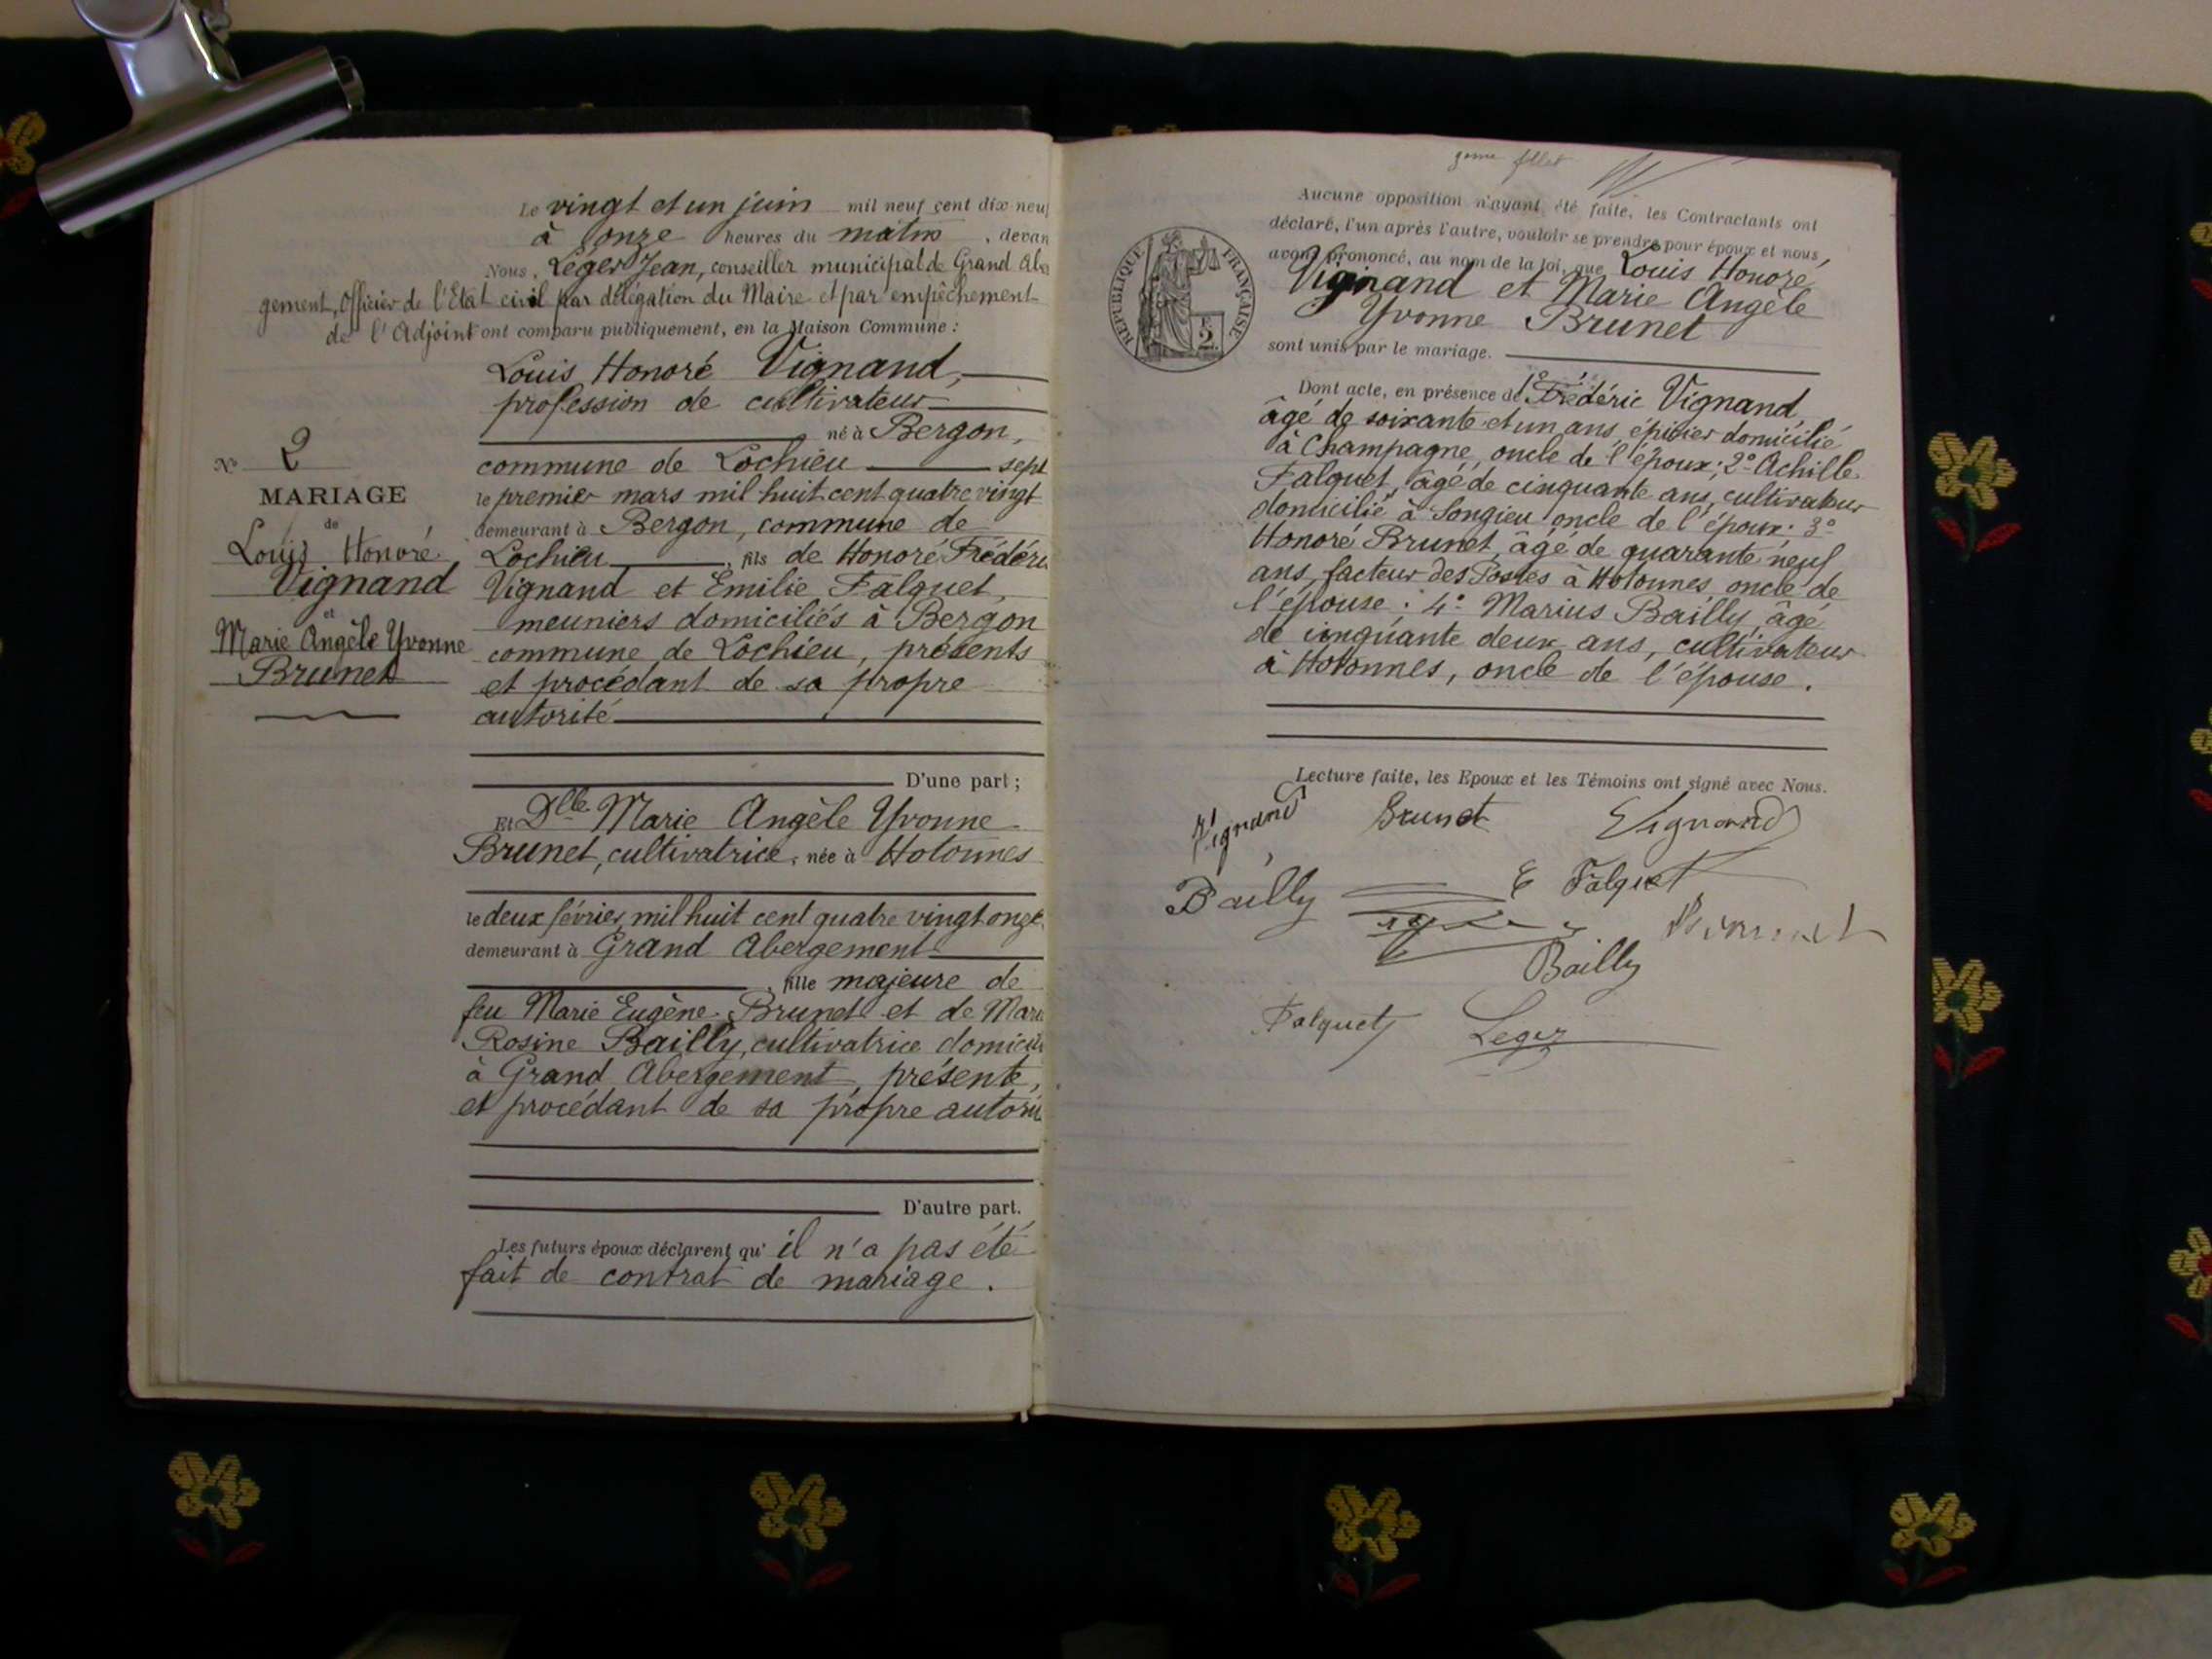 Le vingt et un juin mil neuf cent dix neuf
à onze heures du matin, devan
Nous, Léger Jean, conseiller municipal de Grand Abe
gement, Officier de l'Etat civil par délégation du Maire et par empêchement
de l'Adjoint ont comparu publiquement, en la Maison Commune :
Louis Honoré Vignand,
profession de cultivateur
né à Bergon,
commune de Lochieu sept
le premier mars mil huit cent quatre vingt
demeurant à Bergon, commune de
Lochieu, fils de Honoré Frédéri
Vignand et Emilie Falquet,
meuniers domiciliés à Bergon
commune de Lochieu, présents
et procédant de sa propre
autorité
D'une part ;
Et Dlle Marie Angèle Yvonne
Brunet, cultivatrice, née à Hotonnes
le deux février mil huit cent quatre vingt onze
demeurant à Grand Abergement
, fille majeure de
feu Marie Eugène Brunet et de Marie
Rosine Bailly, cultivatrice domicili
à Grand Abergement, présente,
et procédant de sa propre autori
D'autre part.
Les futurs époux déclarent qu'il n'a pas été
fait de contrat de mariage.
N° 2
MARIAGE
de
Louis Honoré
Vignand
et
Marie Angèle Yvonne
Brunet
RÉPUBLIQUE FRANÇAISE
5
Aucune opposition n'ayant été faite, les Contractants ont
déclaré, l'un après l'autre, vouloir se prendre pour époux et nous
avons prononcé, au nom de la loi, que Louis Honoré
Vignand et Marie Angèle
Yvonne Brunet
sont unis par le mariage.
Dont acte, en présence de 1° Frédéric Vignand
âgé de soixante et un ans, épicier domicilié
à Champagne, oncle de l'époux ; 2° Achille
Falquet, âgé de cinquante ans, cultivateur
domicilié à Songieu oncle de l'époux ; 3°
Honoré Brunet, âgé de quarante neuf
ans, facteur des Postes à Hotonnes, oncle de
l'épouse ; 4° Marius Bailly, âgé
de cinquante deux ans, cultivateur
à Hotonnes, oncle de l'épouse.
Lecture faite, les Epoux et les Témoins ont signé avec Nous.
Vignand Brunet Vignand
Bailly E Falquet
Brunet
Bailly
Falquet Leger